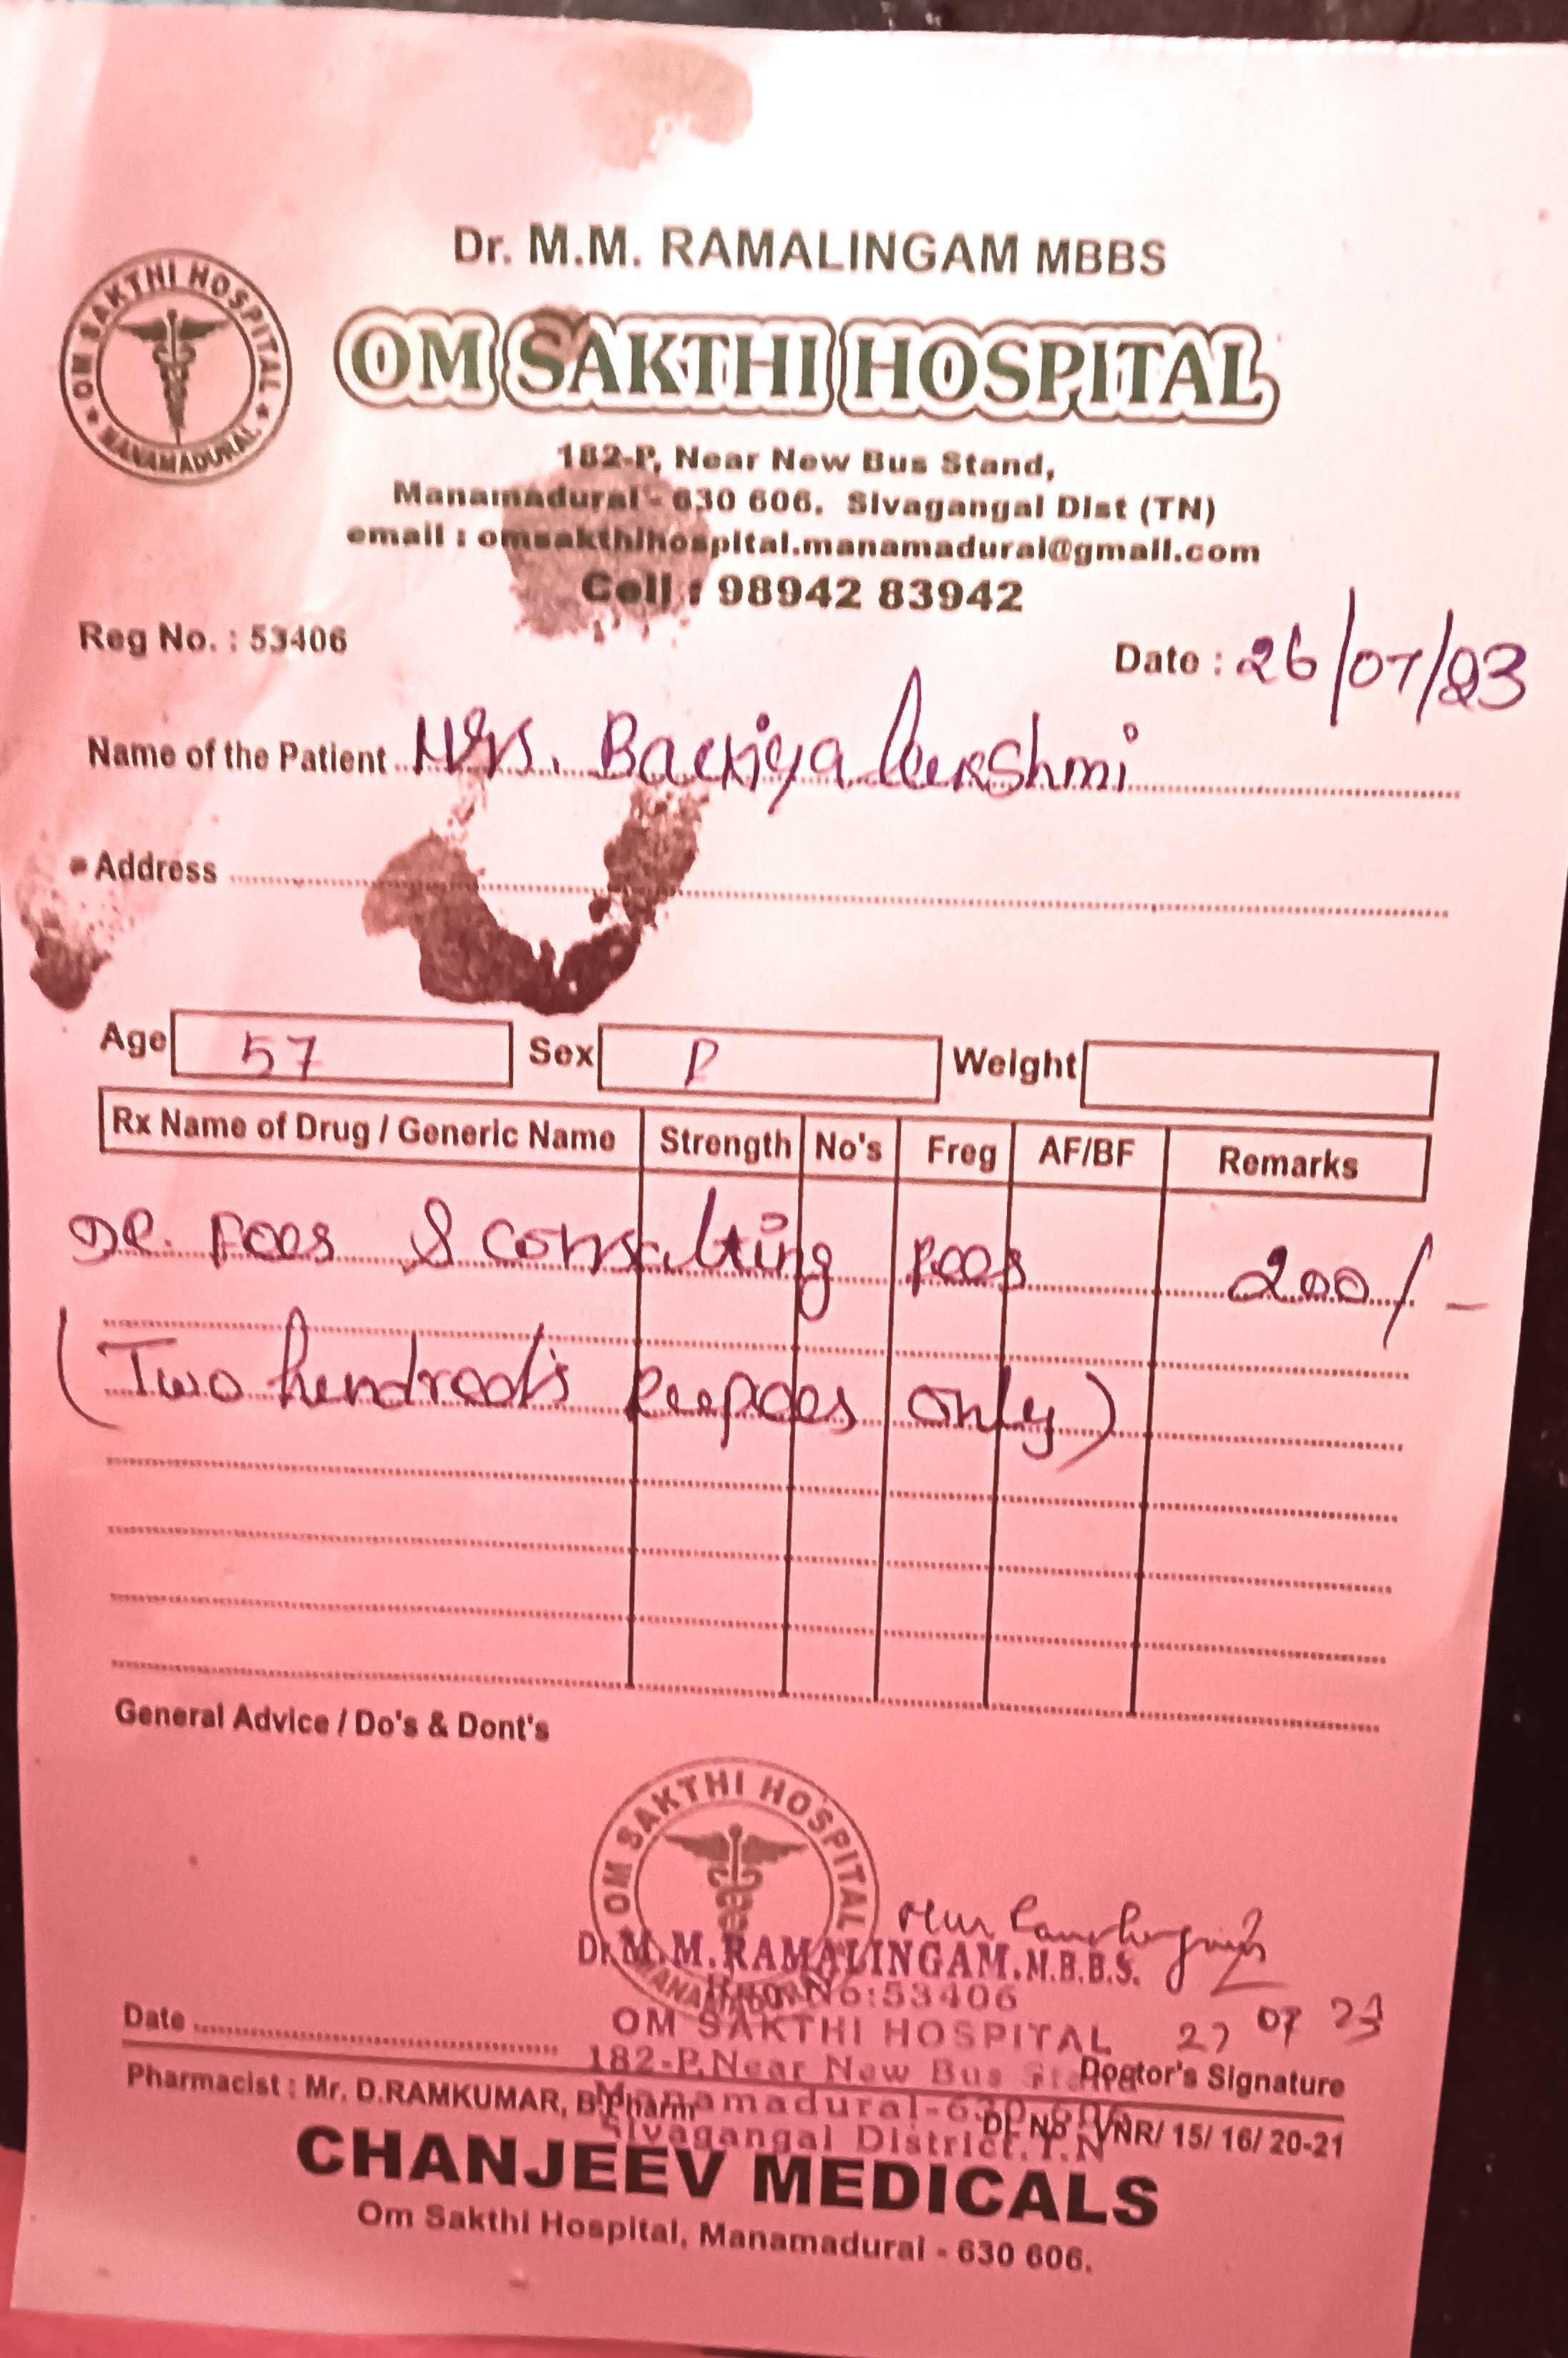 Dr. M.M. RAMALINGAM MBBS
OM SAKTHI HOSPITAL MANAMADURAI
OM SAKTHI HOSPITAL
182-P, Near New Bus Stand,
Manamadurai - 630 606. Sivagangai Dist (TN)
email : omsakthihospital.manamadurai@gmail.com
Cell : 98942 83942
Reg No. : 53406
Date : 26/07/23
Name of the Patient Mrs. Backiya Lukshmi
Address
Age 57 Sex F Weight
Rx Name of Drug / Generic Name Strength No's Freg AF/BF Remarks
DR. Fees & consulting Fees 200/-
(Two hundred's Rupees only)
General Advice / Do's & Dont's
OM SAKTHI HOSPITAL
Dr.M.M.RAMALINGAM.M.B.B.S.
Reg.No:53406
OM SAKTHI HOSPITAL
27 07 23
182-P,Near New Bus
Date
Doctor's Signature
Manamadurai-630 606
Sivagangai District.T.N
Pharmacist : Mr. D.RAMKUMAR, B.Pharm DL No : VNR/ 15/ 16/ 20-21
CHANJEEV MEDICALS
Om Sakthi Hospital, Manamadurai - 630 606.